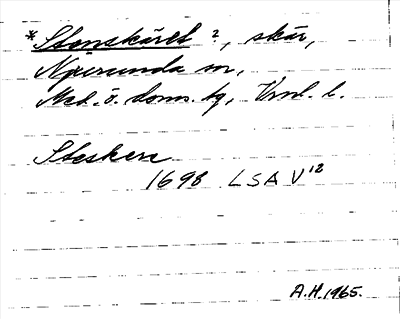 *Stenskäret ?, skär,
Njurunda sn,
Med. ö. doms. tg, Vnl. l.
Stesken
1698 LSA V 12
A.H. 1965.